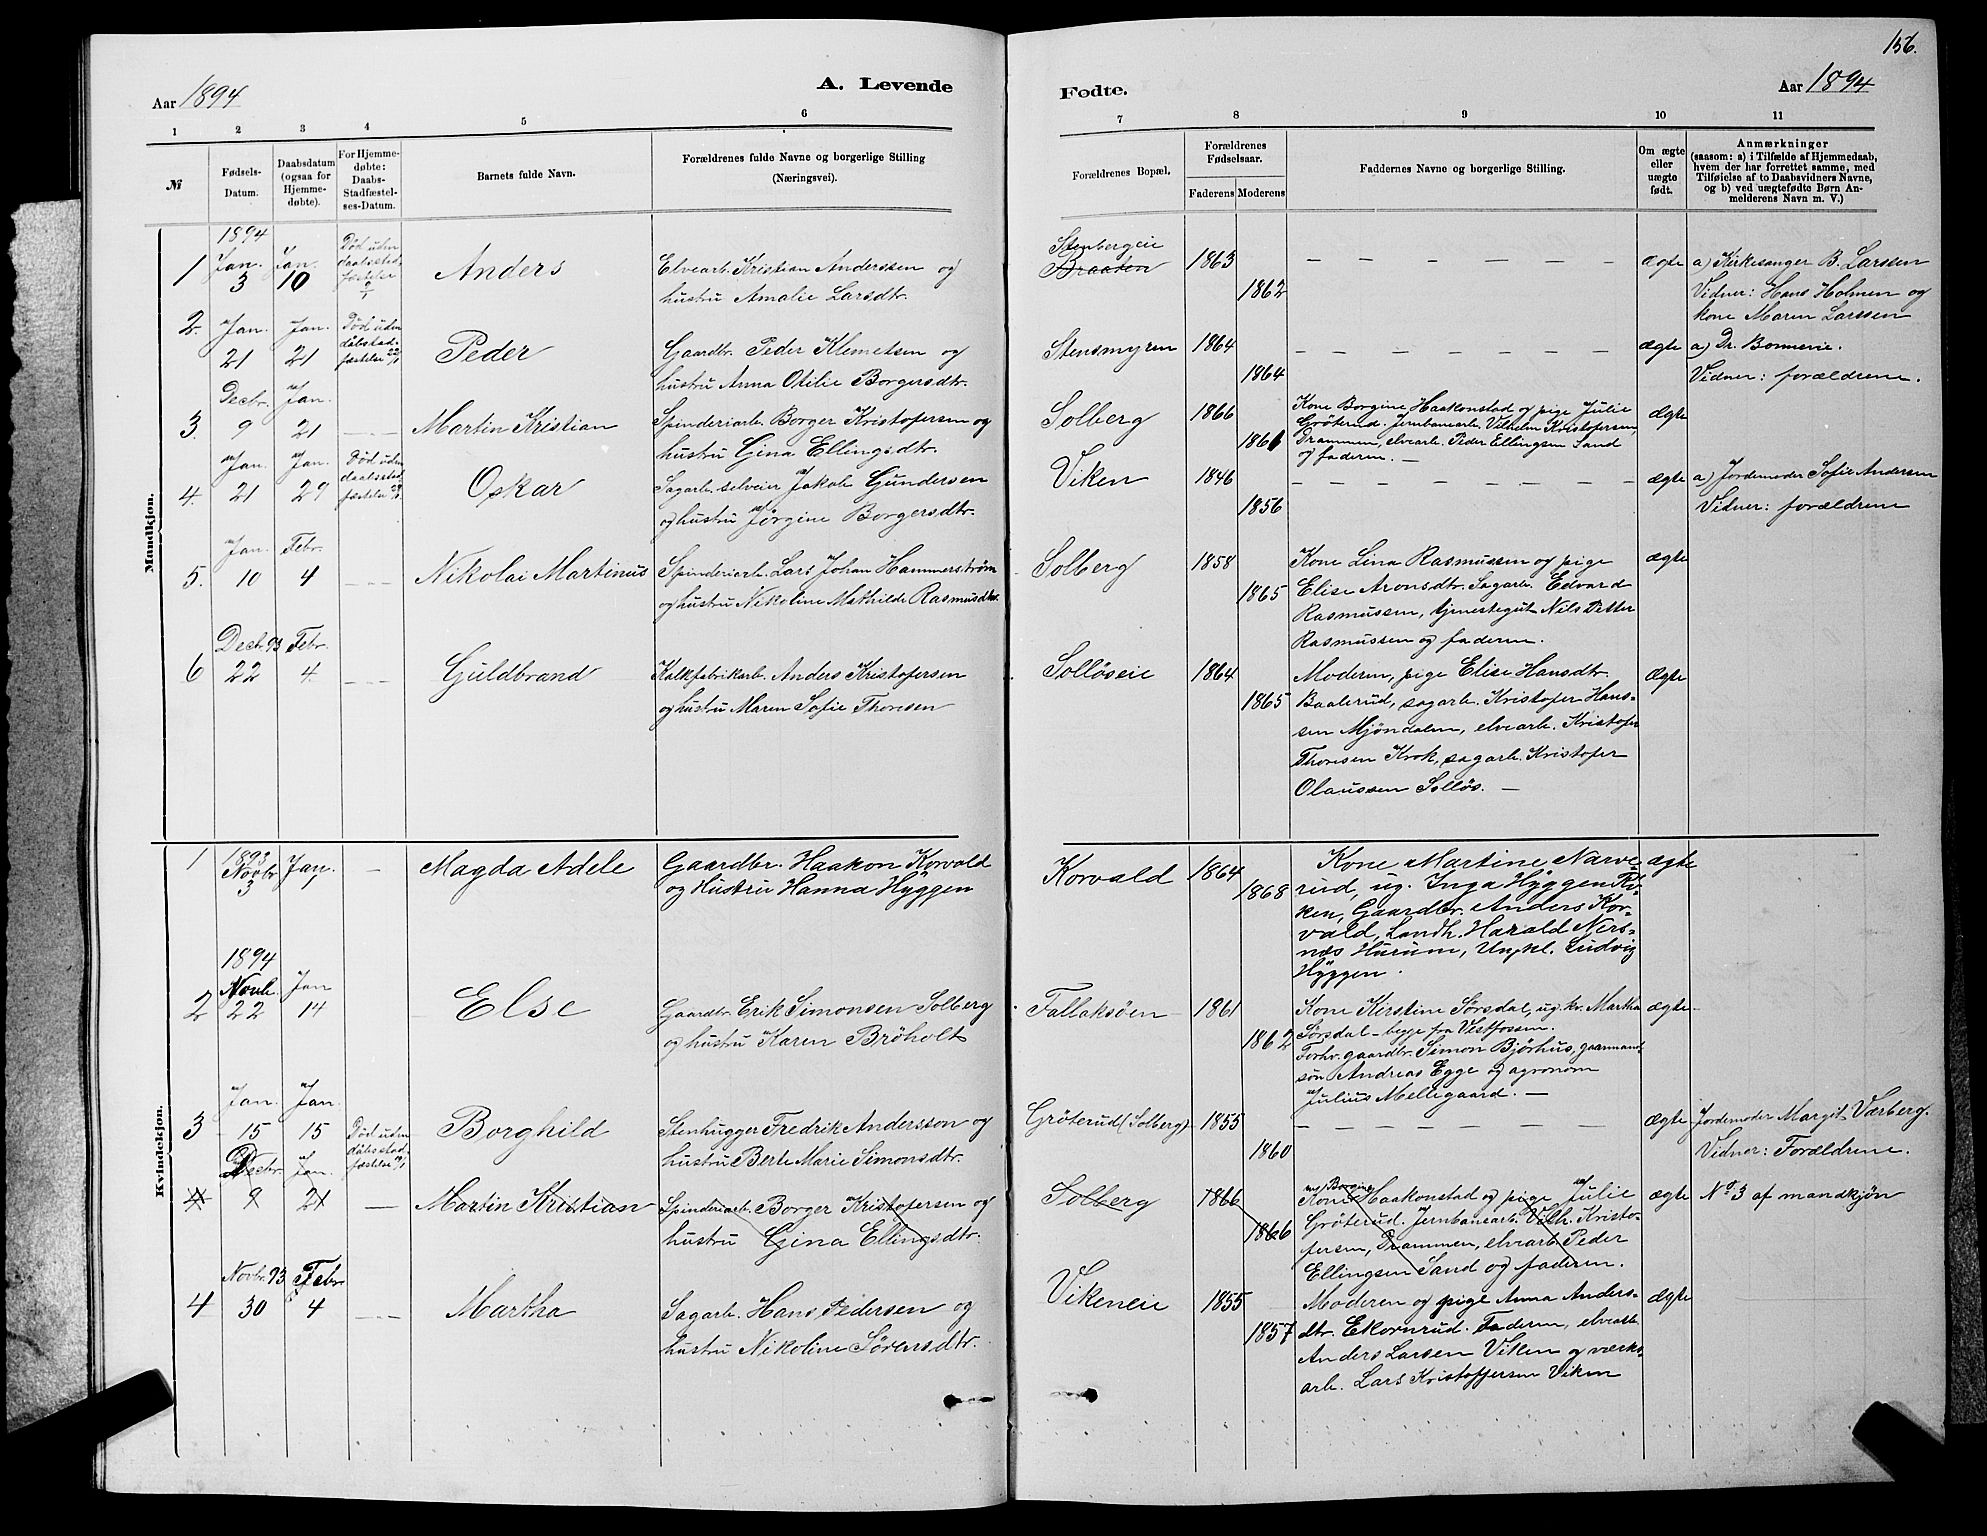 156.
Aar 1894
A. Levende
Fødte.
Aar 1894
1 2 3 4 5 6
7 8 9 10 11
№
Fødsels-
Datum.
Daabsdatum
(ogsaa for
Hjemme-
døbte).
For Hjemme-
døbte:
Daabs-
Stadfæstel-
ses-Datum.
Barnets fulde Navn.
Forældrenes fulde Navne og borgerlige Stilling
(Næringsvei).
Forældrenes Bopæl.
Forældrenes
Fødselsaar.
Faderens Moderens
Faddernes Navne og borgerlige Stilling.
Om ægte
eller
uægte
født.
Anmærkninger
(saasom: a) i Tilfælde af Hjemmedaab,
hvem der har forrettet samme, med
Tilføielse af to Daabsvidners Navne,
og b) ved uægtefødte Børn An-
melderens Navn m. V.)
Mandkjøn.
1894
1 Jan. 3 Jan. 10
Død uden
daabsstad-
fæstelse
Anders
Elvearb. Kristian Anderssen og
hustru Amalie Larsdtr.
Stenbergeie
Braaten
1863
1862
ægte
a) Kirkesanger B. Larssen
Vidner: Hans Holmen og
kone Maren Larssen
2. Jan. 21 Jan. 21
Død uden
dåbsstad-
fæstelse 22/1
Peder
Gaardbr. Peder Klemetsen og
hustru Anna Otilie Borgersdtr.
Stensmyren
1864
1864
ægte
a) Dr. Bonnevie.
Vidner: forældrene.
3. Decbr. 9 Jan. 21
Martin Kristian
Spinderiarb. Borger Kristofersen og
hustru Gina Ellingsdtr.
Solberg
1866
1861
Kone Borgine Haakonstad og pige Julie
Gröterud. Jernbanearb. Vilhelm Kristofersen,
Drammen, elvearb. Peder Ellingsen Sand
og faderen. —
ægte
4. Jan. 21 Jan. 29
Død uden
daabsstad-
fæstelse
Oskar
Sagarb. selveier Jakob Gundersen
og hustru Jørgine Borgersdtr.
Viken
1846
1856
ægte
a) Jordemoder Sofie Andersen
Vidner: forældrene
5. Jan. 10 Febr. 4
Nikolai Martinus
Spinderiarb. Lars Johan Hammerstrøm
og hustru Nikoline Mathilde Rasmusdtr.
Solberg
1858
1865
Kone Lina Rasmussen og pige
Elise Aronsdtr. Sagarb. Edvard
Rasmussen, tjenestegut Nils Petter
Rasmussen og faderen.
ægte
6 Decbr. 93 22 Febr. 4.
Guldbrand
Kalkfabrikarb. Anders Kristofersen
og hustru Maren Sofie Thoresen
Solløseie
1864
1865
Moderen, pige Elise Hansdtr.
Baalerud, sagarb. Kristofer Hans-
sen Mjöndalen, elvearb. Kristofer
Thoresen Krok, sagarb. Kristofer
Olaussen Solløs. —
ægte
Kvindekjøn.
1 1893 Novbr 3 Jan. 1
Magda Adele
Gaardbr. Haakon Korvald
og Hustru Hanna Hyggen
Korvald
1864
1868
Kone Martine Narve-
rud, ug. Inga Hyggen Rø-
ken, Gaardbr. Anders Kor-
vald, Landh. Harald Ners-
næs Hurum, Ungkl. Ludvig
Hyggen.
ægte
1894
2 Novb. 22 Jan 14
Else
Gaardbr. Erik Simonsen Solberg
og hustru Karen Bröholt
Fallaksöen
1861
1862
Kone Kirstine Sørsdal, ug. kv. Martha
Sørsdal – begge fra Vestfossen.
Forhv. gaardbr. Simon Bjørhus, gaarmand-
søn Andreas Egge og agronøm
Julius Mellegaard. —
ægte
3 Jan. 15 Jan. 15
Død uden
dåbsstad-
fæstelse
Borghild
Stenhugger Fredrik Andersson og
hustru Berte Marie Simonsdtr.
Gröterud (Solberg)
1855
1860
ægte
Jordemoder Margit Værberg.
Vidner: Forældrene.
4 Decbr. 9 Jan. 21
Martin Kristian
Spinderiarb. Borger Kristofersen og
hustru Gina Ellingsdtr.
Solberg
1866
1866
Kone Borgine Haakonstad og pige Julie
Gröterud. Jernbanearb. Vilh. Kristo-
fersen, Drammen, elvearb. Peder
Ellingsen Sand og faderen.
ægte
No 3 af mandkjøn
4 Novbr. 93 30 Febr 4
Martha
Sagarb. Hans Pedersen og
hustru Nikoline Sörensdtr.
Vikeneie
1855
1857
Moderen og pige Anna Anders-
dtr. Ekornrud. Faderen, elvearb.
Anders Larsen Viken og værks-
arb. Lars Kristoffersen Viken
ægte